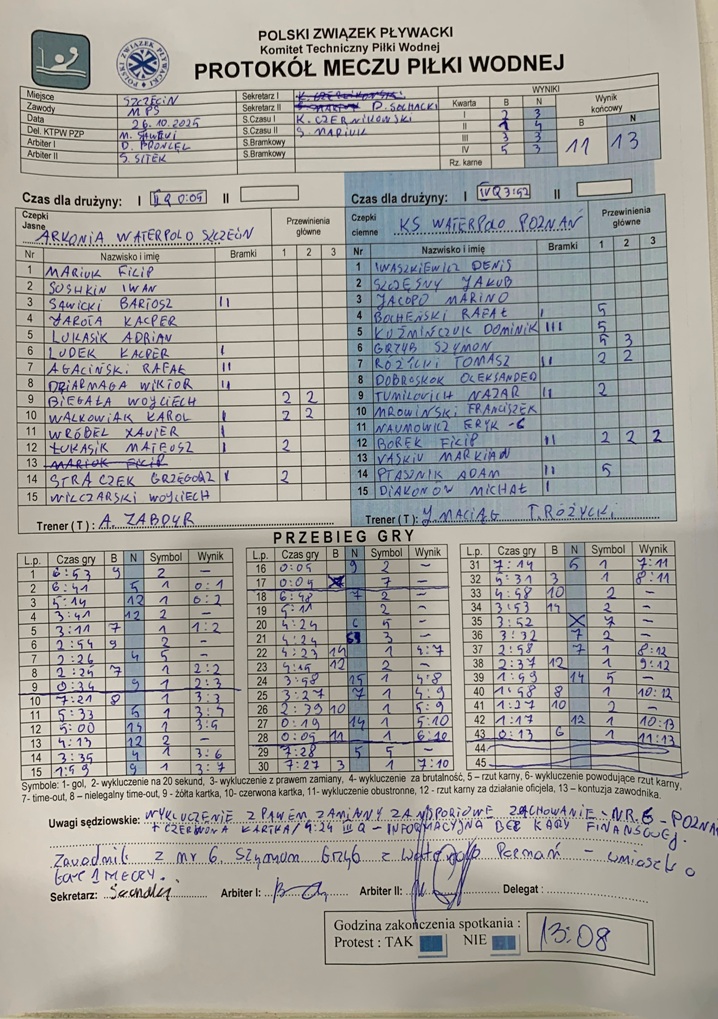 POLSKI ZWIĄZEK PŁYWACKI
Komitet Techniczny Piłki Wodnej
PROTOKÓŁ MECZU PIŁKI WODNEJ
POLSKI ZWIĄZEK PŁYWACKI
Miejsce SZCZECIN Sekretarz I WYNIKI
Zawody MPS Sekretarz II D. SOCHACKI Kwarta B N Wynik końcowy
Data 26.10.2025 S.Czasu I K. CZERNIKOWSKI I 2 3 B N
Del. KTPW PZP M. S.Czasu II S. MARIUK II 1 4
Arbiter I D. S.Bramkowy III 3 3 11 13
Arbiter II S. SITEK S.Bramkowy IV 5 3
Rz. karne
Czas dla drużyny: I II Q 0:05 II
Czas dla drużyny: I IV Q 3:52 II
Czepki Jasne ARKONIA WATERPOLO SZCZECIN Przewinienia główne
Nr Nazwisko i imię Bramki 1 2 3
1 MARIUK FILIP
2 SUSHKIN IWAN
3 SAWICKI BARTOSZ II
4 JAROTA KACPER
5 LUKASIK ADRIAN
6 LUDEK KACPER I
7 AGACIŃSKI RAFAŁ II
8 DZIARMAGA WIKTOR II
9 BIEGAŁA WOJCIECH 2 2
10 WALKOWIAK KAROL I 2 2
11 WRÓBEL XAVIER I
12 ŁUKASIK MATEUSZ I 2
13 MARIUK FILIP
14 STRACZEK GRZEGORZ I 2
15 WILCZARSKI WOJCIECH
Trener (T) : A. ZABDYR
Czepki ciemne KS WATERPOLO POZNAŃ Przewinienia główne
Nr Nazwisko i imię Bramki 1 2 3
1 IWASZKIEWICZ DENIS
2 SZCZĘSNY JAKUB
3 JACOPO MARINO
4 BOCHEŃSKI RAFAŁ I 5
5 KUŹMIŃCZUK DOMINIK III 5
6 GRZYB SZYMON 5 3
7 TOMASZ II 2 2
8 DOBROSKOK OLEKSANDER
9 TUMILOVICH NAZAR II 2
10 MROWIŃSKI FRANCISZEK
11 NAUMOWICZ ERYK -G
12 BOREK FILIP II 2 2 2
13 VASKIV MARKIIAN
14 PTASZNIK ADAM II 5
15 DIAKONÓW MICHAŁ I
Trener (T) : J MACIĄG T. RÓŻYCKI
PRZEBIEG GRY
L.p. Czas gry B N Symbol Wynik
1 6:53 9 2 –
2 6:41 5 1 0:1
3 5:14 12 1 0:2
4 3:41 12 2 –
5 3:11 7 1 1:2
6 2:54 9 2 –
7 2:26 4 5 –
8 2:25 7 1 2:2
9 0:34 9 1 2:3
10 7:21 8 1 3:3
11 5:33 5 1 3:4
12 5:00 14 1 3:5
13 4:13 12 2 –
14 3:35 4 1 3:6
15 1:59 9 1 3:7
L.p. Czas gry B N Symbol Wynik
16 0:05 9 2 –
17 0:04 X 7 –
18 6:48 7 2 –
19 5:11 2 –
20 4:24 6 5 –
21 4:24 3 –
22 4:23 14 1 4:7
23 4:15 12 2 –
24 3:58 15 1 4:8
25 3:27 7 1 4:9
26 2:39 10 1 5:9
27 0:19 14 1 5:10
28 0:05 11 1 6:10
29 7:28 5 5 –
30 7:27 3 1 7:10
L.p. Czas gry B N Symbol Wynik
31 7:14 5 1 7:11
32 5:31 3 1 8:11
33 4:58 10 2 –
34 3:53 14 2 –
35 3:52 X 7 –
36 3:32 7 2 –
37 2:58 7 1 8:12
38 2:37 12 1 9:12
39 1:59 14 5 –
40 1:58 8 1 10:12
41 1:27 10 2 –
42 1:17 12 1 10:13
43 0:13 6 1 11:13
44
45
Symbole: 1- gol, 2- wykluczenie na 20 sekund, 3- wykluczenie z prawem zamiany, 4- wykluczenie za brutalność, 5 – rzut karny, 6- wykluczenie powodujące rzut karny,
7- time-out, 8 – nielegalny time-out, 9 - żółta kartka, 10- czerwona kartka, 11- wykluczenie obustronne, 12 - rzut karny za działanie oficjela, 13 – kontuzja zawodnika.
Uwagi sędziowskie: WYKLUCZENIE Z PRAWEM ZAMIANY ZA NSPORTOWE ZACHOWANIE - NR. 6 - POZNAŃ
+ CZERWONA KARTKA / 4:24 III Q - INFORMACYJNA BEZ KARY FINANSOWEJ.
Zawodnik z nr 6. Szymon Grzyb z Waterpolo Poznań – wniosek o
karę 1 MECZU.
Sekretarz: Arbiter I: Arbiter II: Delegat :
Godzina zakończenia spotkania :
Protest : TAK NIE 13:08